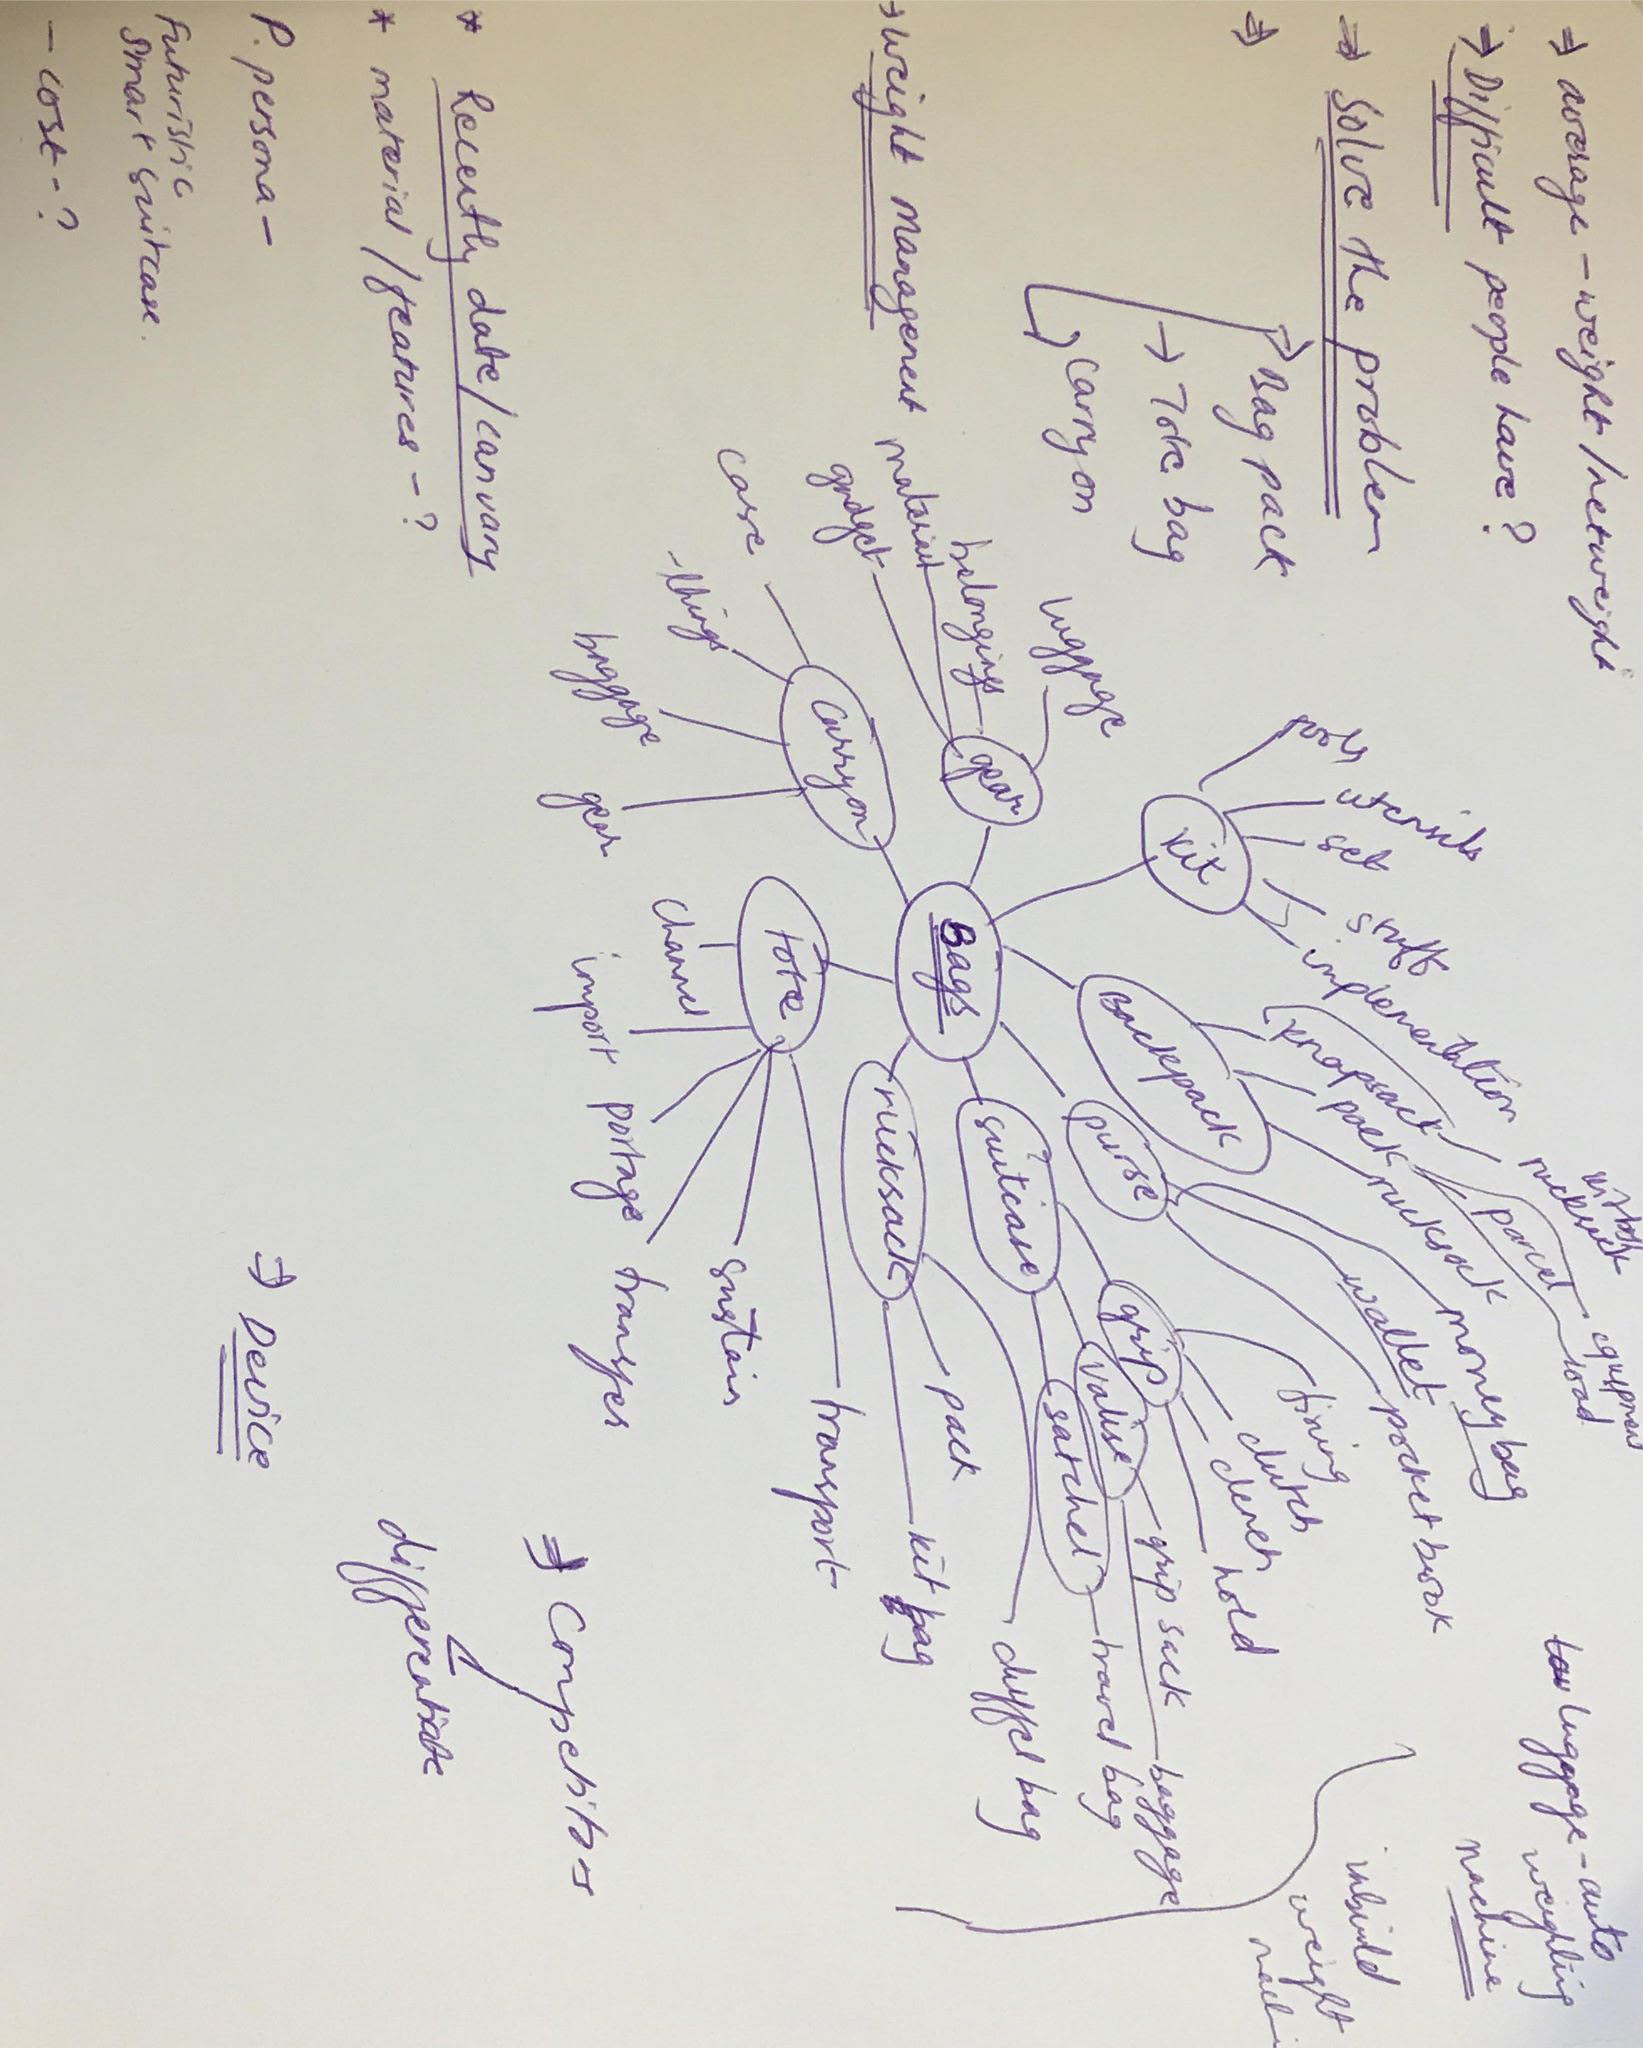 ⇒ average - weight/netweight
⇒ Difficult people have?
⇒ Solve the problem
⇒
Bag pack
→ Tote bag
carry on
→ weight management
* material/features - ?
P. persona -
Futuristic
smart suitcase.
- cost - ?
Bags
kit
tools
utensils
set
stuff
implementation
gear
luggage
belongings
material
gadget
Carryon
case
things
baggage
gear
tote
channel
import
portage
transfer
sustain
transport
rucksack
pack
kit bag
duffel bag
suitcase
grip
firing
clutch
clench
hold
valise
grip sack
baggage
satchel
travel bag
purse
wallet
money bag
pocket book
Backpack
knapsack
pack
rucksack
parcel
kitbag
load
luggage - auto
weighting
machine
inbuild
weight
⇒ Competitor
differentiate
⇒ Device